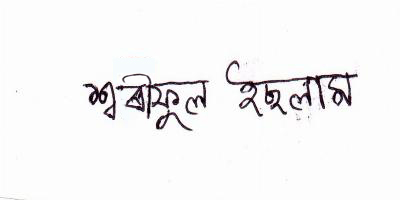 শ্বৰীফুল ইছলাম